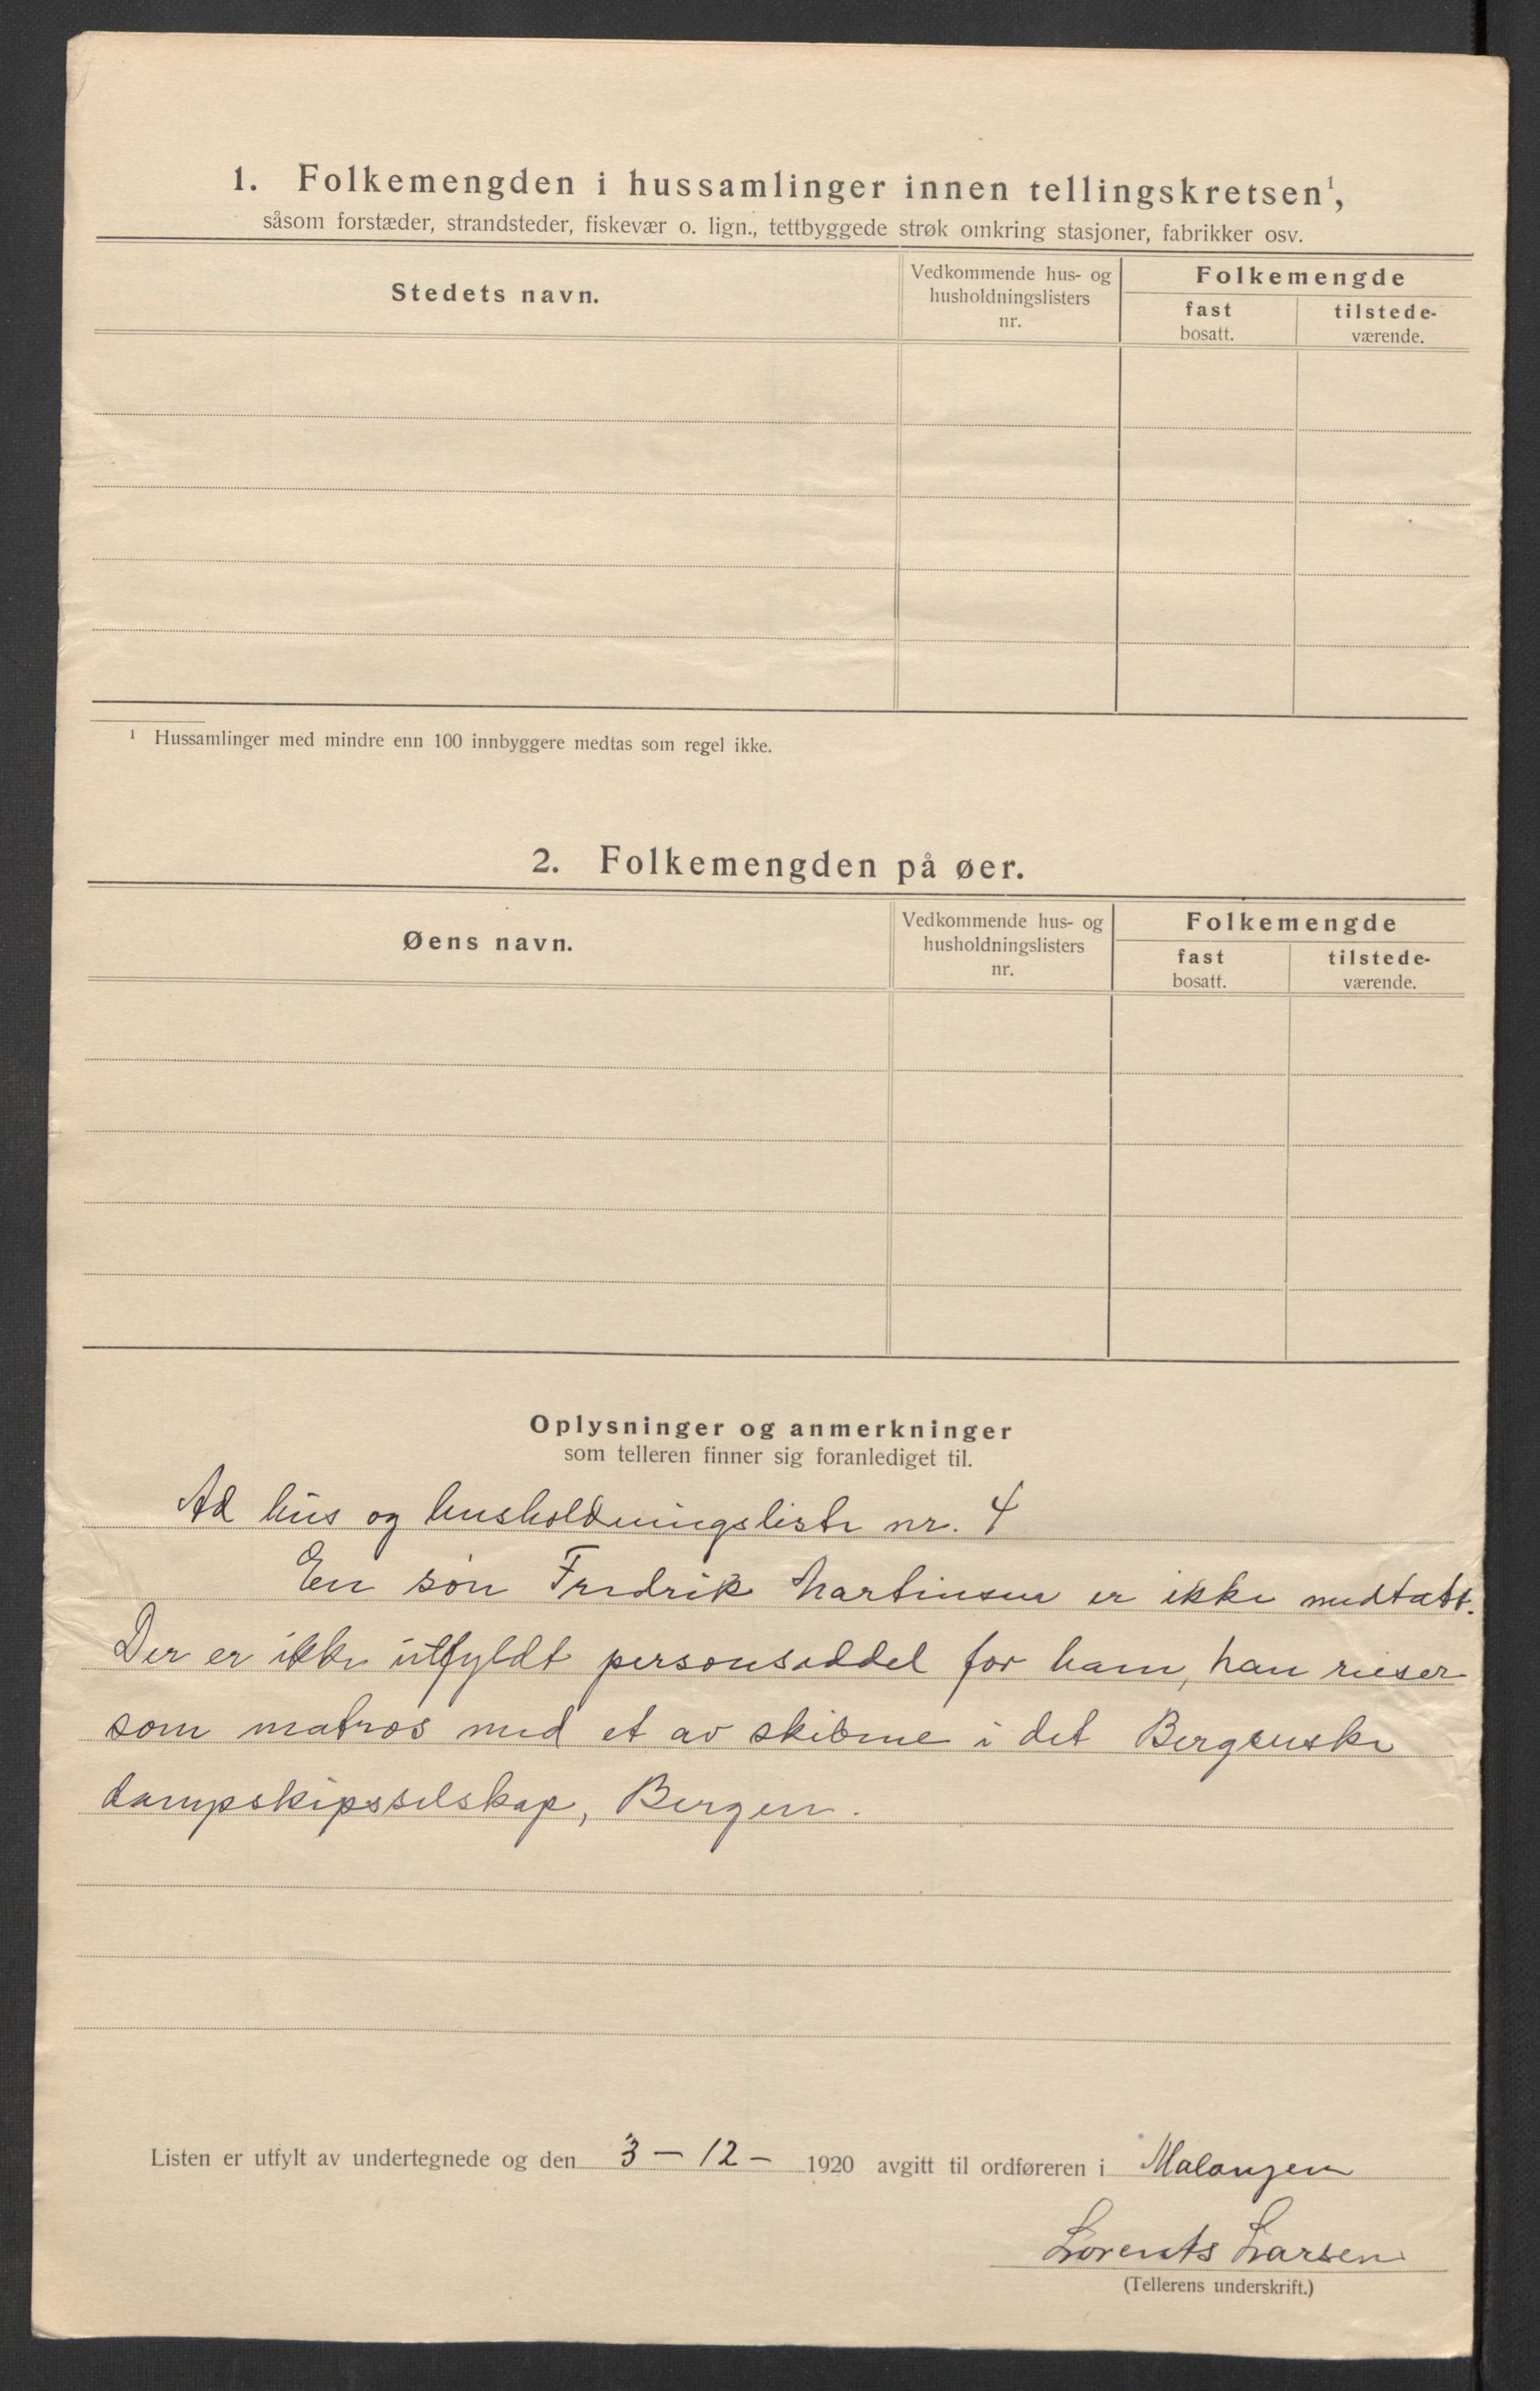 1. Folkemengden i hussamlinger innen tellingskretsen¹,
såsom forstæder, strandsteder, fiskevær o. lign., tettbyggede strøk omkring stasjoner, fabrikker osv.
Stedets navn.
Vedkommende hus- og
husholdningslisters
nr.
Folkemengde
fast
bosatt.
tilstede-
værende.
¹ Hussamlinger med mindre enn 100 innbyggere medtas som regel ikke.
2. Folkemengden på øer.
Øens navn.
Vedkommende hus- og
husholdningslisters
nr.
Folkemengde
fast
bosatt.
tilstede-
værende.
Oplysninger og anmerkninger
som telleren finner sig foranlediget til.
Ad hus og husholdningsliste nr. 4
En søn Fredrik Martinsen er ikke medtatt.
Der er ikke utfyldt personseddel for ham, han reiser
som matros med et av skibene i det Bergenske
dampskipsselskap, Bergen.
Listen er utfylt av undertegnede og den 3 – 12 – 1920 avgitt til ordføreren i Malangen
Lorents Larsen
(Tellerens underskrift.)